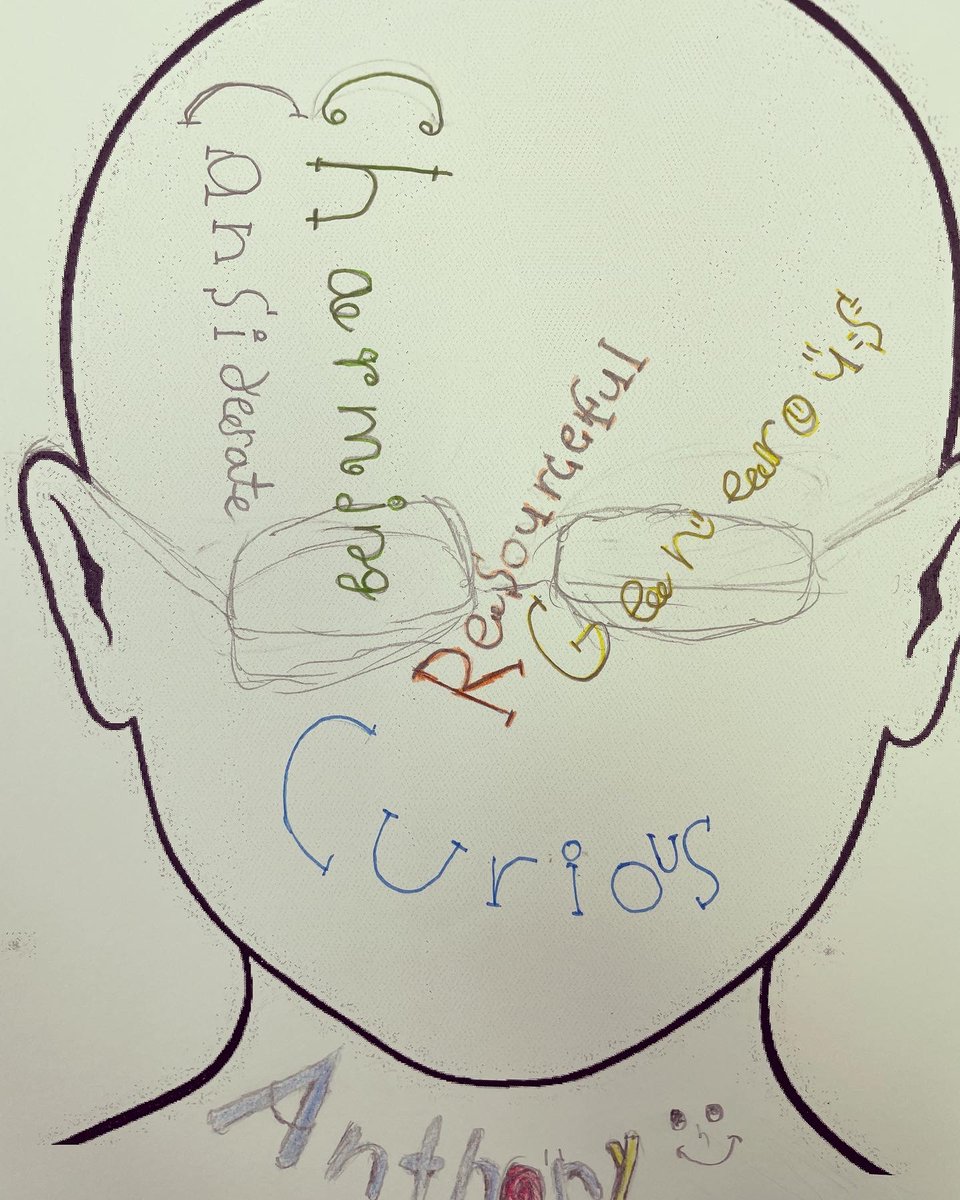 Considerate
Charming
Resourceful
Generous
Curious
Anthony